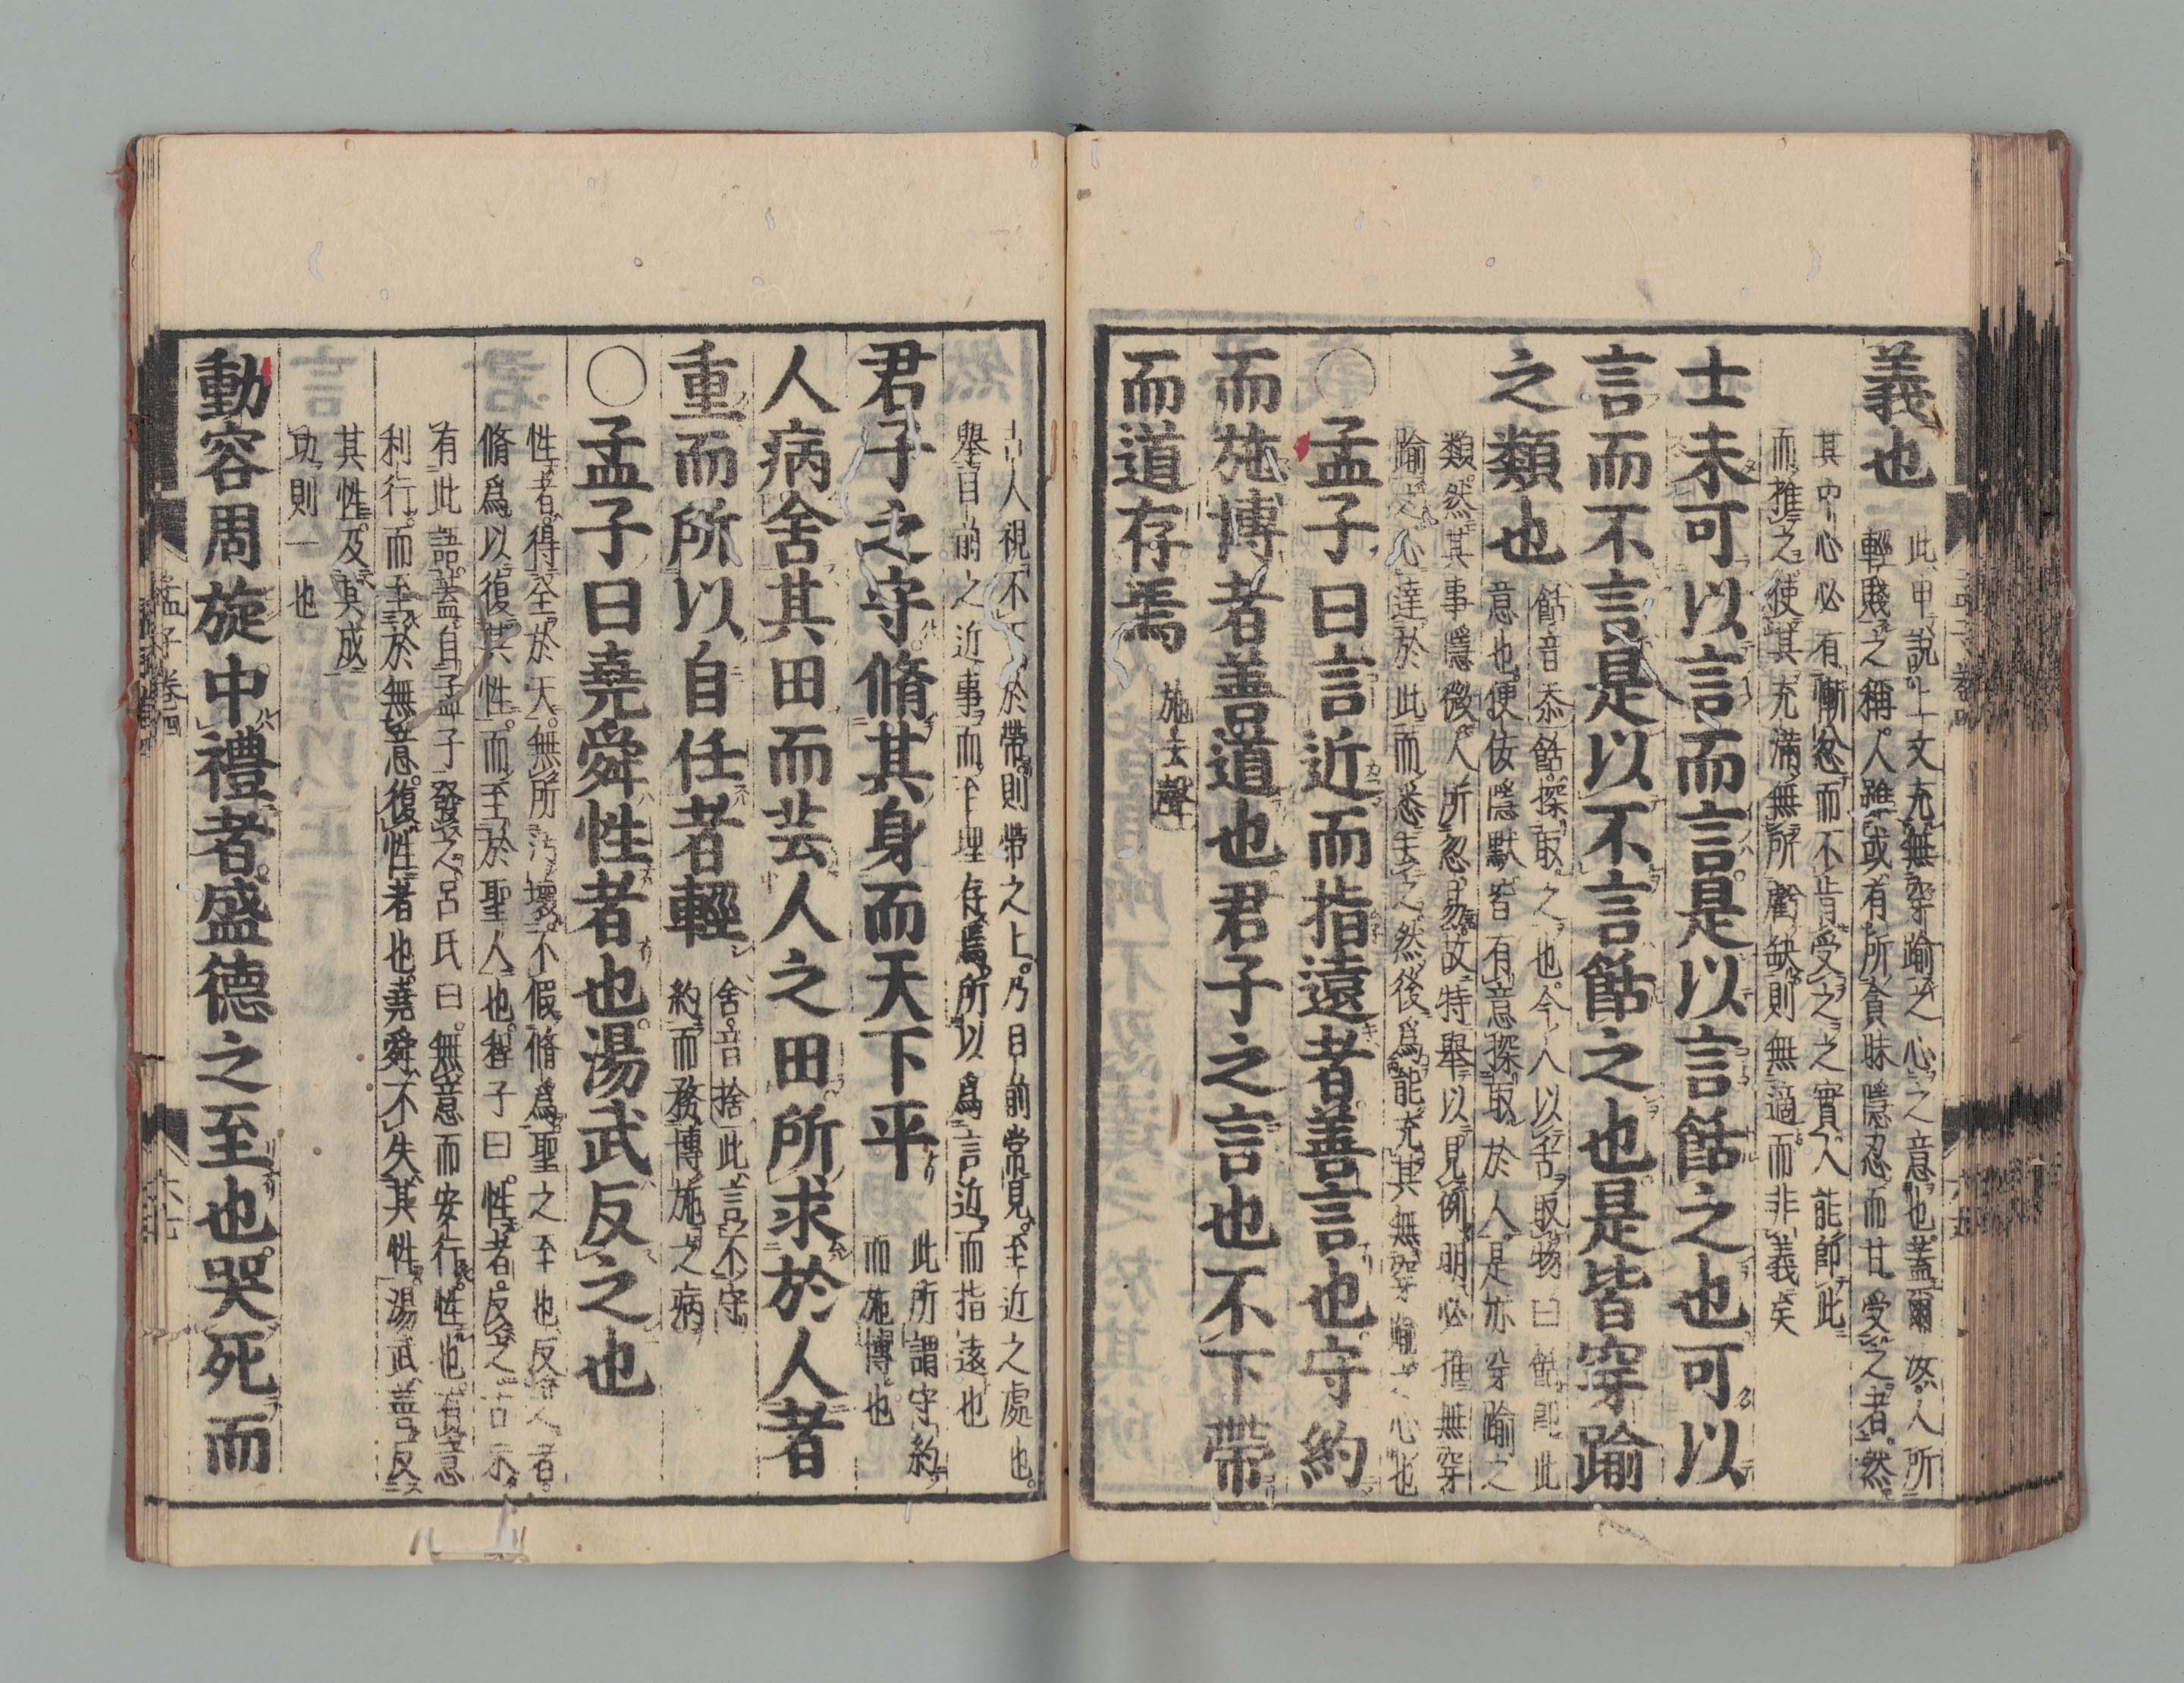 義也
此申說上文充無穿踰之心之意也蓋爾汝人所
輕賤之稱人雖或有所貪昧隱忍而甘受之者然
其中心必有慚忿而不肯受之之實人能即此
而推之使其充滿無所虧缺則無適而非義矣
士未可以言而言是以言餂之也可以
言而不言是以不言餂之也是皆穿踰
之類也
餂音忝餂探取之也今人以舌取物曰餂即此
意也便佞隱默皆有意探取於人是亦穿踰之
類然其事隱微人所忽易故特舉以見例明必推無穿
踰之心達於此而悉去之然後爲能充其無穿踰之心也
○孟子曰言近而指遠者善言也守約
而施博者善道也君子之言也不下帶
而道存焉
施去聲
古人視不下於帶則帶之上乃目前常見至近之處也
舉目前之近事而至理存焉所以爲言近而指遠也
君子之守脩其身而天下平
此所謂守約
而施博也
人病舍其田而芸人之田所求於人者
重而所以自任者輕
舍音捨此言不守
約而務博施之病
○孟子曰堯舜性者也湯武反之也
性者得全於天無所汚壞不假脩爲聖之至也反之者
脩爲以復其性而至於聖人也程子曰性者反之古未
有此語蓋自孟子發之呂氏曰無意而安行性也有意
利行而至於無意復性者也堯舜不失其性湯武善反
其性及其成
功則一也
動容周旋中禮者盛德之至也哭死而
孟子卷四
六七